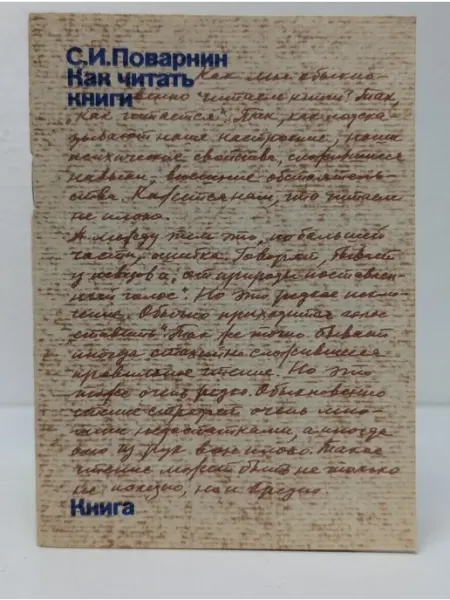 С.И.Поварнин
Как читать
книги
Как мы обыкно-
венно читаем книги? Так,
„как читается". Так, как подска-
зывают наше настроение, наши
психические свойства, сложившиеся
навыки, внешние обстоятель-
ства. Кажется нам, что читаем
не плохо.
А между тем это, по большей
части, ошибка. Говорят, бывает
у певцов и „от природы поставлен-
ный голос". Но это редкое исклю-
чение. Обычно приходится голос
„ставить". Так же точно бывает
иногда само сложившееся
правильное чтение. Но это
тоже очень редко. Обыкновенно
чтение страдает очень мно-
гими недостатками, а иногда
оно из рук вон плохо. Такое
чтение может быть не только
не полезно, но и вредно.
Книга